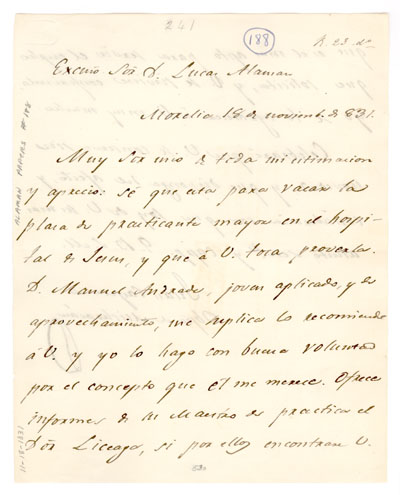 241
188
R. 23. dre
Excmo Sor D. Lucas Alaman
Morelia 18 de noviemb. de 831.
Muy Sor mio de toda mi estimacion
y aprecio: se que esta para vacar la
plaza de practicante mayor en el hospi-
tal de Jesus, y que á V. toca proveerla.
D. Manuel Andrade, joven aplicado, y de
aprovechamiento, me suplica lo recomiende
á V. y yo lo hago con buena voluntad
por el concepto que él me merece. Ofrece
informes de su Maestro de practica el
Dor Liceaga, si por ellos encontrare V.
ALAMAN PAPERS # 188
11-18-1831